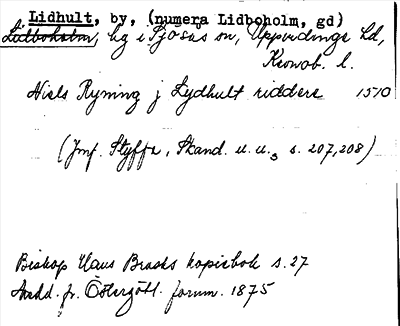 Lidhult, by, (numera Lidboholm, gd)
Lidboholm, lig i Sjösås sn, Uppvidinge hd,
Kronob. l.
Niels Ryning j Lydhult riddere 1510
(Jmf. Styffe, Skand. u. u.3 s. 207, 208)
Biskop Hans Brasks kopiebok s. 27
Medd. fr. Östergötl. fornm. 1875